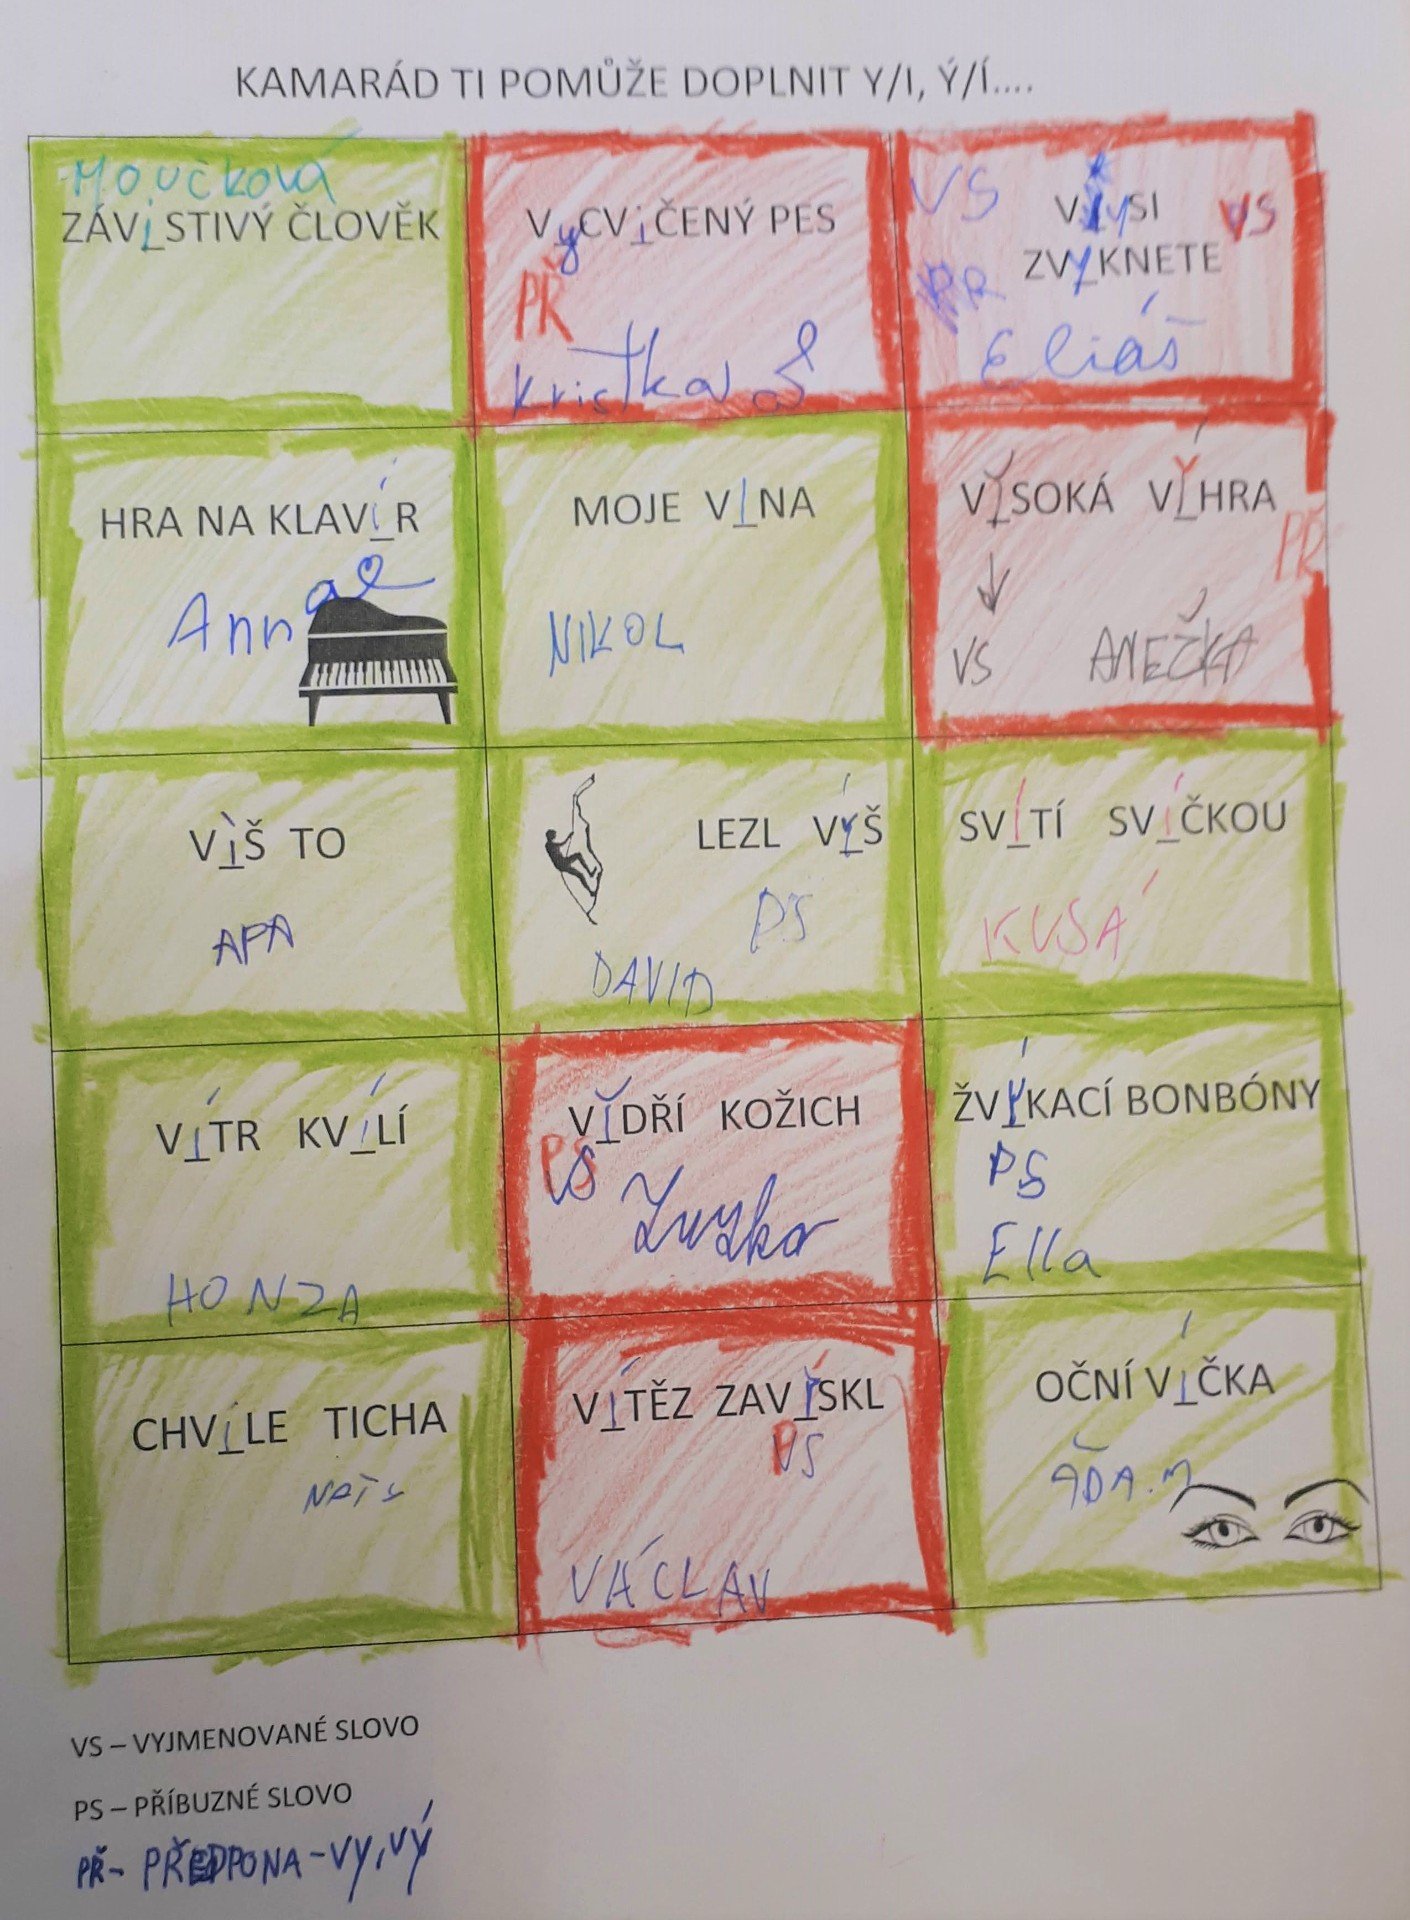 KAMARÁD TI POMŮŽE DOPLNIT Y/I, Ý/Í....
Moučková
ZÁViSTIVÝ ČLOVĚK
VyCViČENÝ PES
PŘ
Kristka
VS
VySI
VS
ZVyKNETE
PR
Eliáš
HRA NA KLAVíR
Anna
MOJE VINA
NIKOL
VYSOKÁ VÝHRA
PŘ
VS
ANEČKA
VÌŠ TO
APA
LEZL VÝŠ
PS
DAVID
SVÍTÍ SVÍČKOU
KUSÁ
VÍTR KVÍLÍ
HONZA
VYDŘÍ KOŽICH
PS
VS
Zuzka
ŽVÝKACÍ BONBÓNY
PS
Ella
CHVíLE TICHA
VÍTĚZ ZAVÝSKL
VS
VÁCLAV
OČNÍ VÍČKA
ADA.M
VS – VYJMENOVANÉ SLOVO
PS – PŘÍBUZNÉ SLOVO
PŘ- PŘEDPONA - VY, VÝ